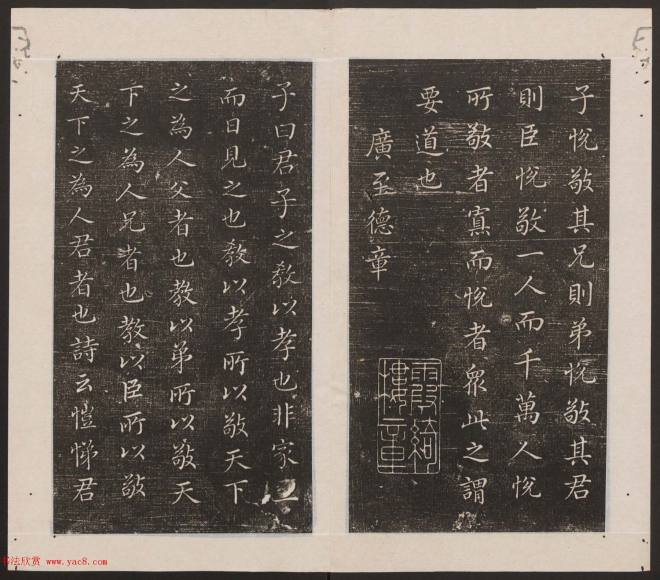 子悅敬其兄則弟悅敬其君
則臣悅敬一人而千萬人悅
所敬者寡而悅者眾此之謂
要道也
廣至德章
子曰君子之教以孝也非家
而日見之也教以孝所以敬天下
之為人父者也教以弟所以敬天
下之為人兄者也教以臣所以敬
天下之為人君者也詩云愷悌君
书法欣赏 www.yac8.com